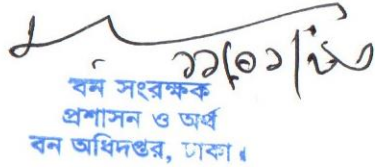 বন সংরক্ষক
প্রশাসন ও অর্থ
বন অধিদপ্তর, ঢাকা।